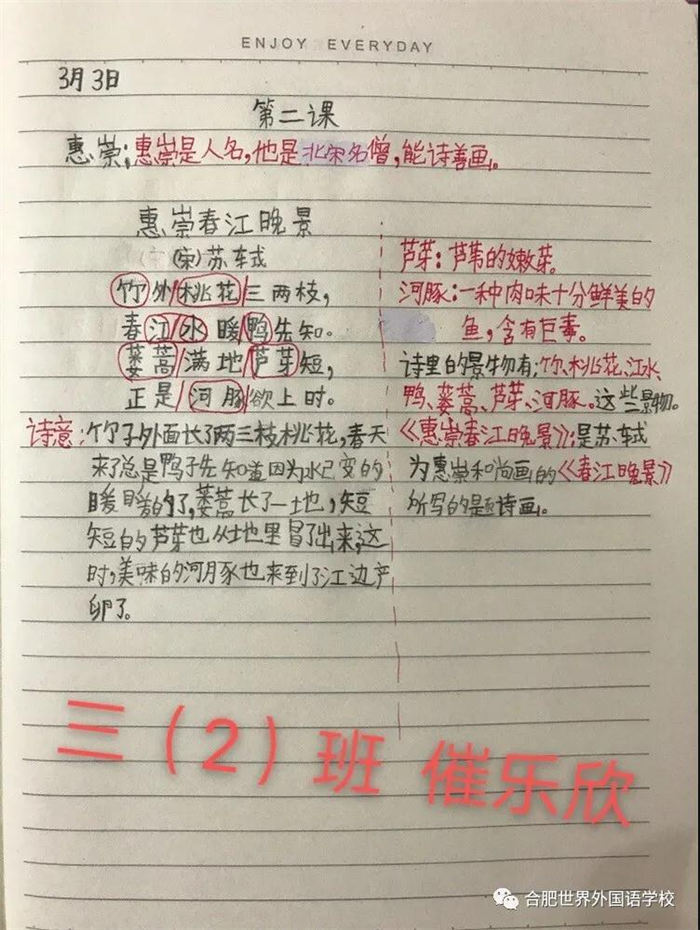 ENJOY EVERYDAY
3月3日
第二课
惠崇:惠崇是人名,他是北宋名僧,能诗善画。
惠崇春江晚景
(宋)苏轼
竹外/桃花/三两枝,
春/江/水暖/鸭先知。
蒌蒿/满地/芦芽短,
正是/河豚/欲上时。
诗意:竹子外面长了两三枝桃花,春天
来了总是鸭子先知道因为水已变的
暖暖的了,蒌蒿长了一土地,短
短的芦芽也从土地里冒了出来,这
时,美味的河豚也来到了江边产
卵了。
芦芽:芦苇的嫩芽。
河豚:一种肉味十分鲜美的
鱼,含有巨毒。
诗里的景物有:竹、桃花、江水、
鸭、蒌蒿、芦芽、河豚。这些景物。
《惠崇春江晚景》:是苏轼
为惠崇和尚画的《春江晚景》
所写的题诗画。
三(2)班 催乐欣
合肥世界外国语学校